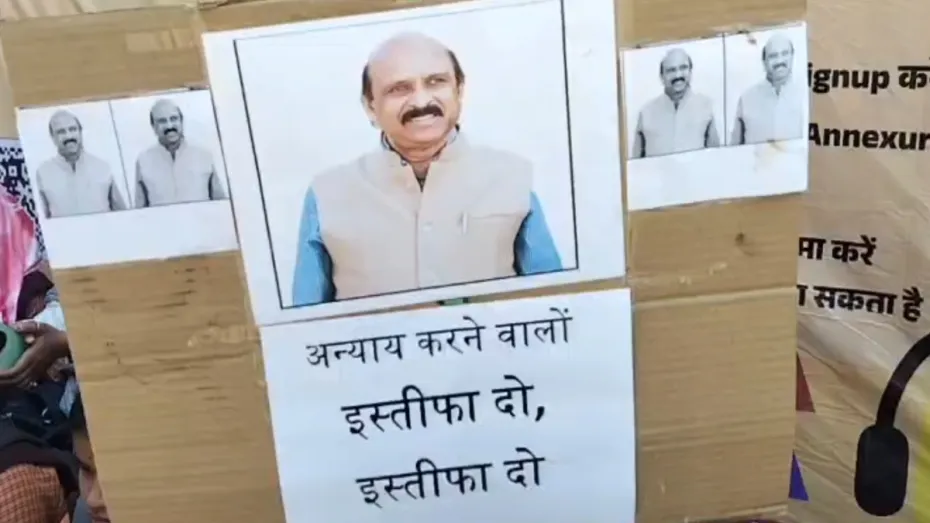 अन्याय करने वालों
इस्तीफा दो,
इस्तीफा दो
ignup
Annexur
मा करें
सकता है